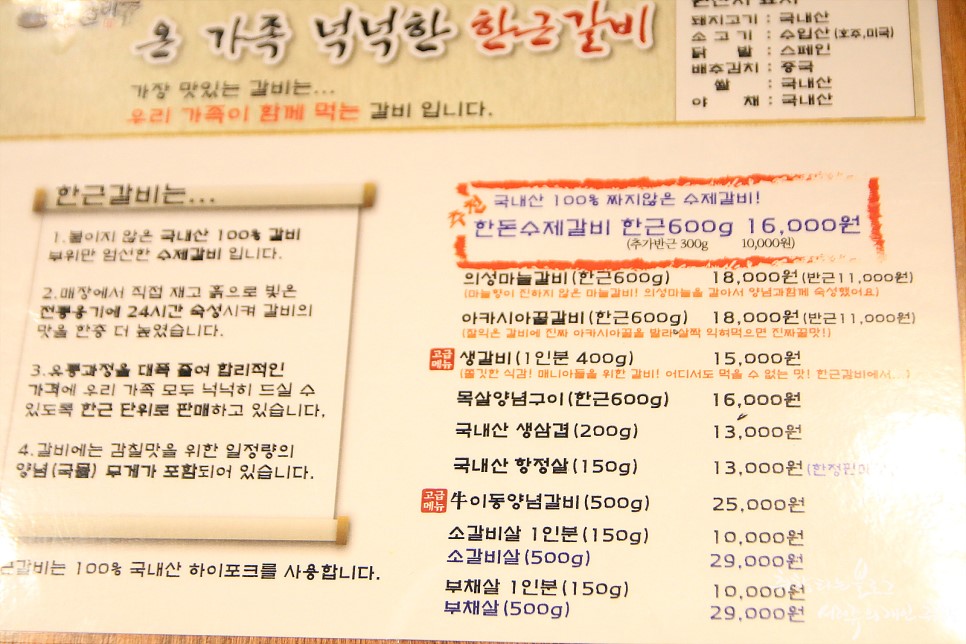 온 가족 넉넉한 한근갈비
가장 맛있는 갈비는...
우리 가족이 함께 먹는 갈비 입니다.
돼지고기 : 국내산
소고기 : 수입산 (호주,미국)
닭 발 : 스페인
배추김치 : 중국
쌀 : 국내산
야 채 : 국내산
한근갈비는...
1.붙이지 않은 국내산 100% 갈비
부위만 엄선한 수제갈비 입니다.
2.매장에서 직접 재고 흙으로 빚은
전통옹기에 24시간 숙성시켜 갈비의
맛을 한층 더 높였습니다.
3.유통과정을 대폭 줄여 합리적인
가격에 우리 가족 모두 넉넉히 드실 수
있도록 한근 단위로 판매하고 있습니다.
4.갈비에는 감칠맛을 위한 일정량의
양념(국물) 무게가 포함되어 있습니다.
근갈비는 100% 국내산 하이포크를 사용합니다.
추천
국내산 100% 짜지않은 수제갈비!
한돈수제갈비 한근600g 16,000원
(추가반근 300g 10,000원)
의성마늘갈비(한근600g) 18,000원(반근11,000원)
(마늘향이 진하지 않은 마늘갈비! 의성마늘을 갈아서 양념과함께 숙성했어요)
아카시아꿀갈비(한근600g) 18,000원(반근11,000원)
(잘익은 갈비에 진짜 아카시아꿀을 발라 살짝 익혀먹으면 진짜꿀맛!)
고급메뉴 생갈비(1인분 400g) 15,000원
(쫄깃한 식감! 매니아들을 위한 갈비! 어디서도 먹을 수 없는 맛! 한근갈비에서...)
목살양념구이(한근600g) 16,000원
국내산 생삼겹(200g) 13,000원
국내산 항정살(150g) 13,000원
고급메뉴 牛이동양념갈비(500g) 25,000원
소갈비살 1인분(150g) 10,000원
소갈비살(500g) 29,000원
부채살 1인분(150g) 10,000원
부채살(500g) 29,000원